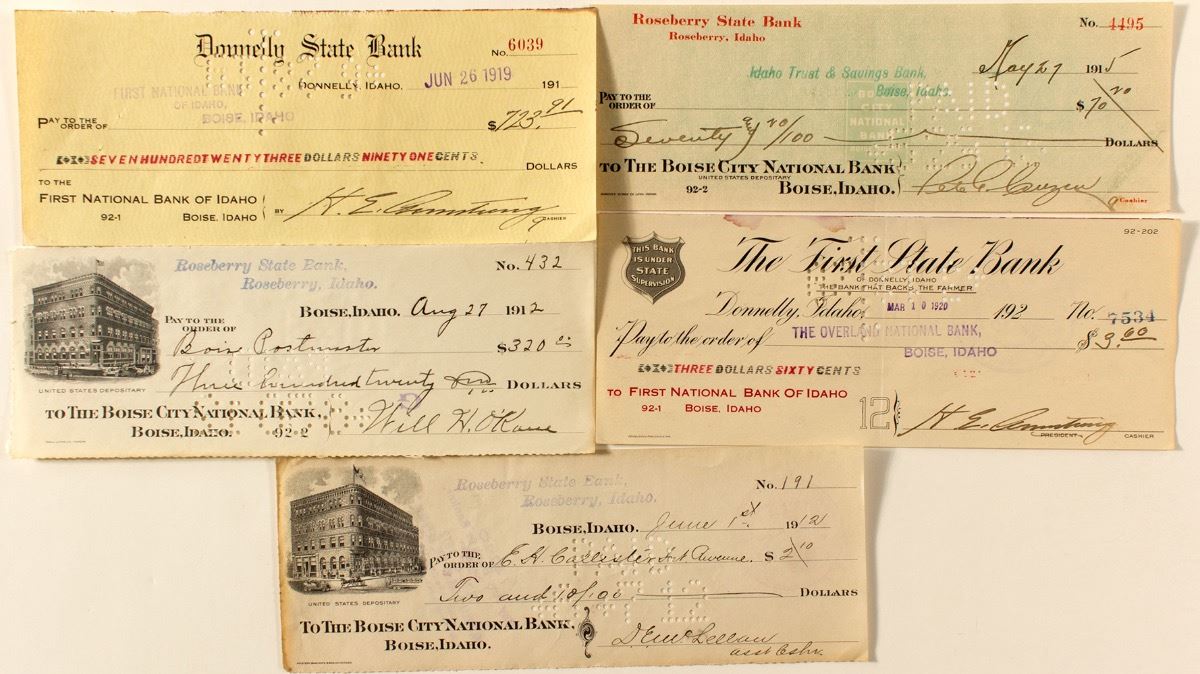 Donnelly State Bank
No. 6039
DONNELLY, IDAHO. JUN 26 1919 191
FIRST NATIONAL BANK
OF IDAHO,
BOISE, IDAHO
PAY TO THE
ORDER OF
$723.91
SEVEN HUNDRED TWENTY THREE DOLLARS NINETY ONE CENTS
DOLLARS
TO THE
FIRST NATIONAL BANK OF IDAHO
92-1 BOISE, IDAHO
BY H. E. Armstrong
CASHIER
Roseberry State Bank
Roseberry, Idaho
No. 4495
May 27 1915
Idaho Trust & Savings Bank,
Boise, Idaho.
PAY TO THE
ORDER OF
$70 20
BOISE
CITY
NATIONAL
BANK
Seventy & 20/100 DOLLARS
TO THE BOISE CITY NATIONAL BANK
UNITED STATES DEPOSITARY
92-2 BOISE, IDAHO.
Cashier
Roseberry State Bank,
Roseberry, Idaho.
No. 432
BOISE, IDAHO. Aug 27 1912
PAY TO THE
ORDER OF
Boise Postmaster $320 00
Three hundred twenty DOLLARS
UNITED STATES DEPOSITARY
TO THE BOISE CITY NATIONAL BANK,
BOISE, IDAHO. 92-2
Will H. O'Kane
92-202
THIS BANK
IS UNDER
STATE
SUPERVISION
The First State Bank
OF DONNELLY, IDAHO
THE BANK THAT BACKS THE FARMER
Donnelly, Idaho, MAR 10 1920 192 No. 7534
Pay to the order of THE OVERLAND NATIONAL BANK, $3.60
BOISE, IDAHO
THREE DOLLARS SIXTY CENTS
TO FIRST NATIONAL BANK OF IDAHO
92-1 BOISE, IDAHO
12
H E Armstrong
PRESIDENT CASHIER
Roseberry State Bank,
Roseberry, Idaho.
No. 191
BOISE, IDAHO. June 1st 1912
PAY TO THE
ORDER OF E. H. Callister $2 10
Two and 10/100 DOLLARS
UNITED STATES DEPOSITARY
TO THE BOISE CITY NATIONAL BANK,
BOISE, IDAHO.
D. E. McLellan
asst Cshr.